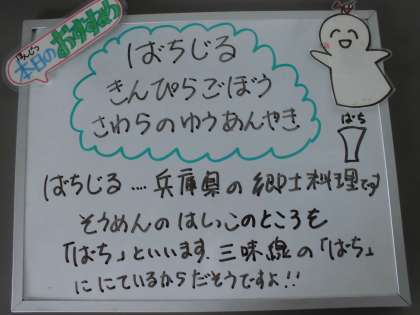 ほんじつ
本日のおすすめ
ばちじる
きんぴらごぼう
さわらのゆうあんやき
ばち
ばちじる....兵庫県の郷土料理です
そうめんのはしっこのところを
「ばち」といいます.三味線の「ばち」
ににているからだそうですよ!!